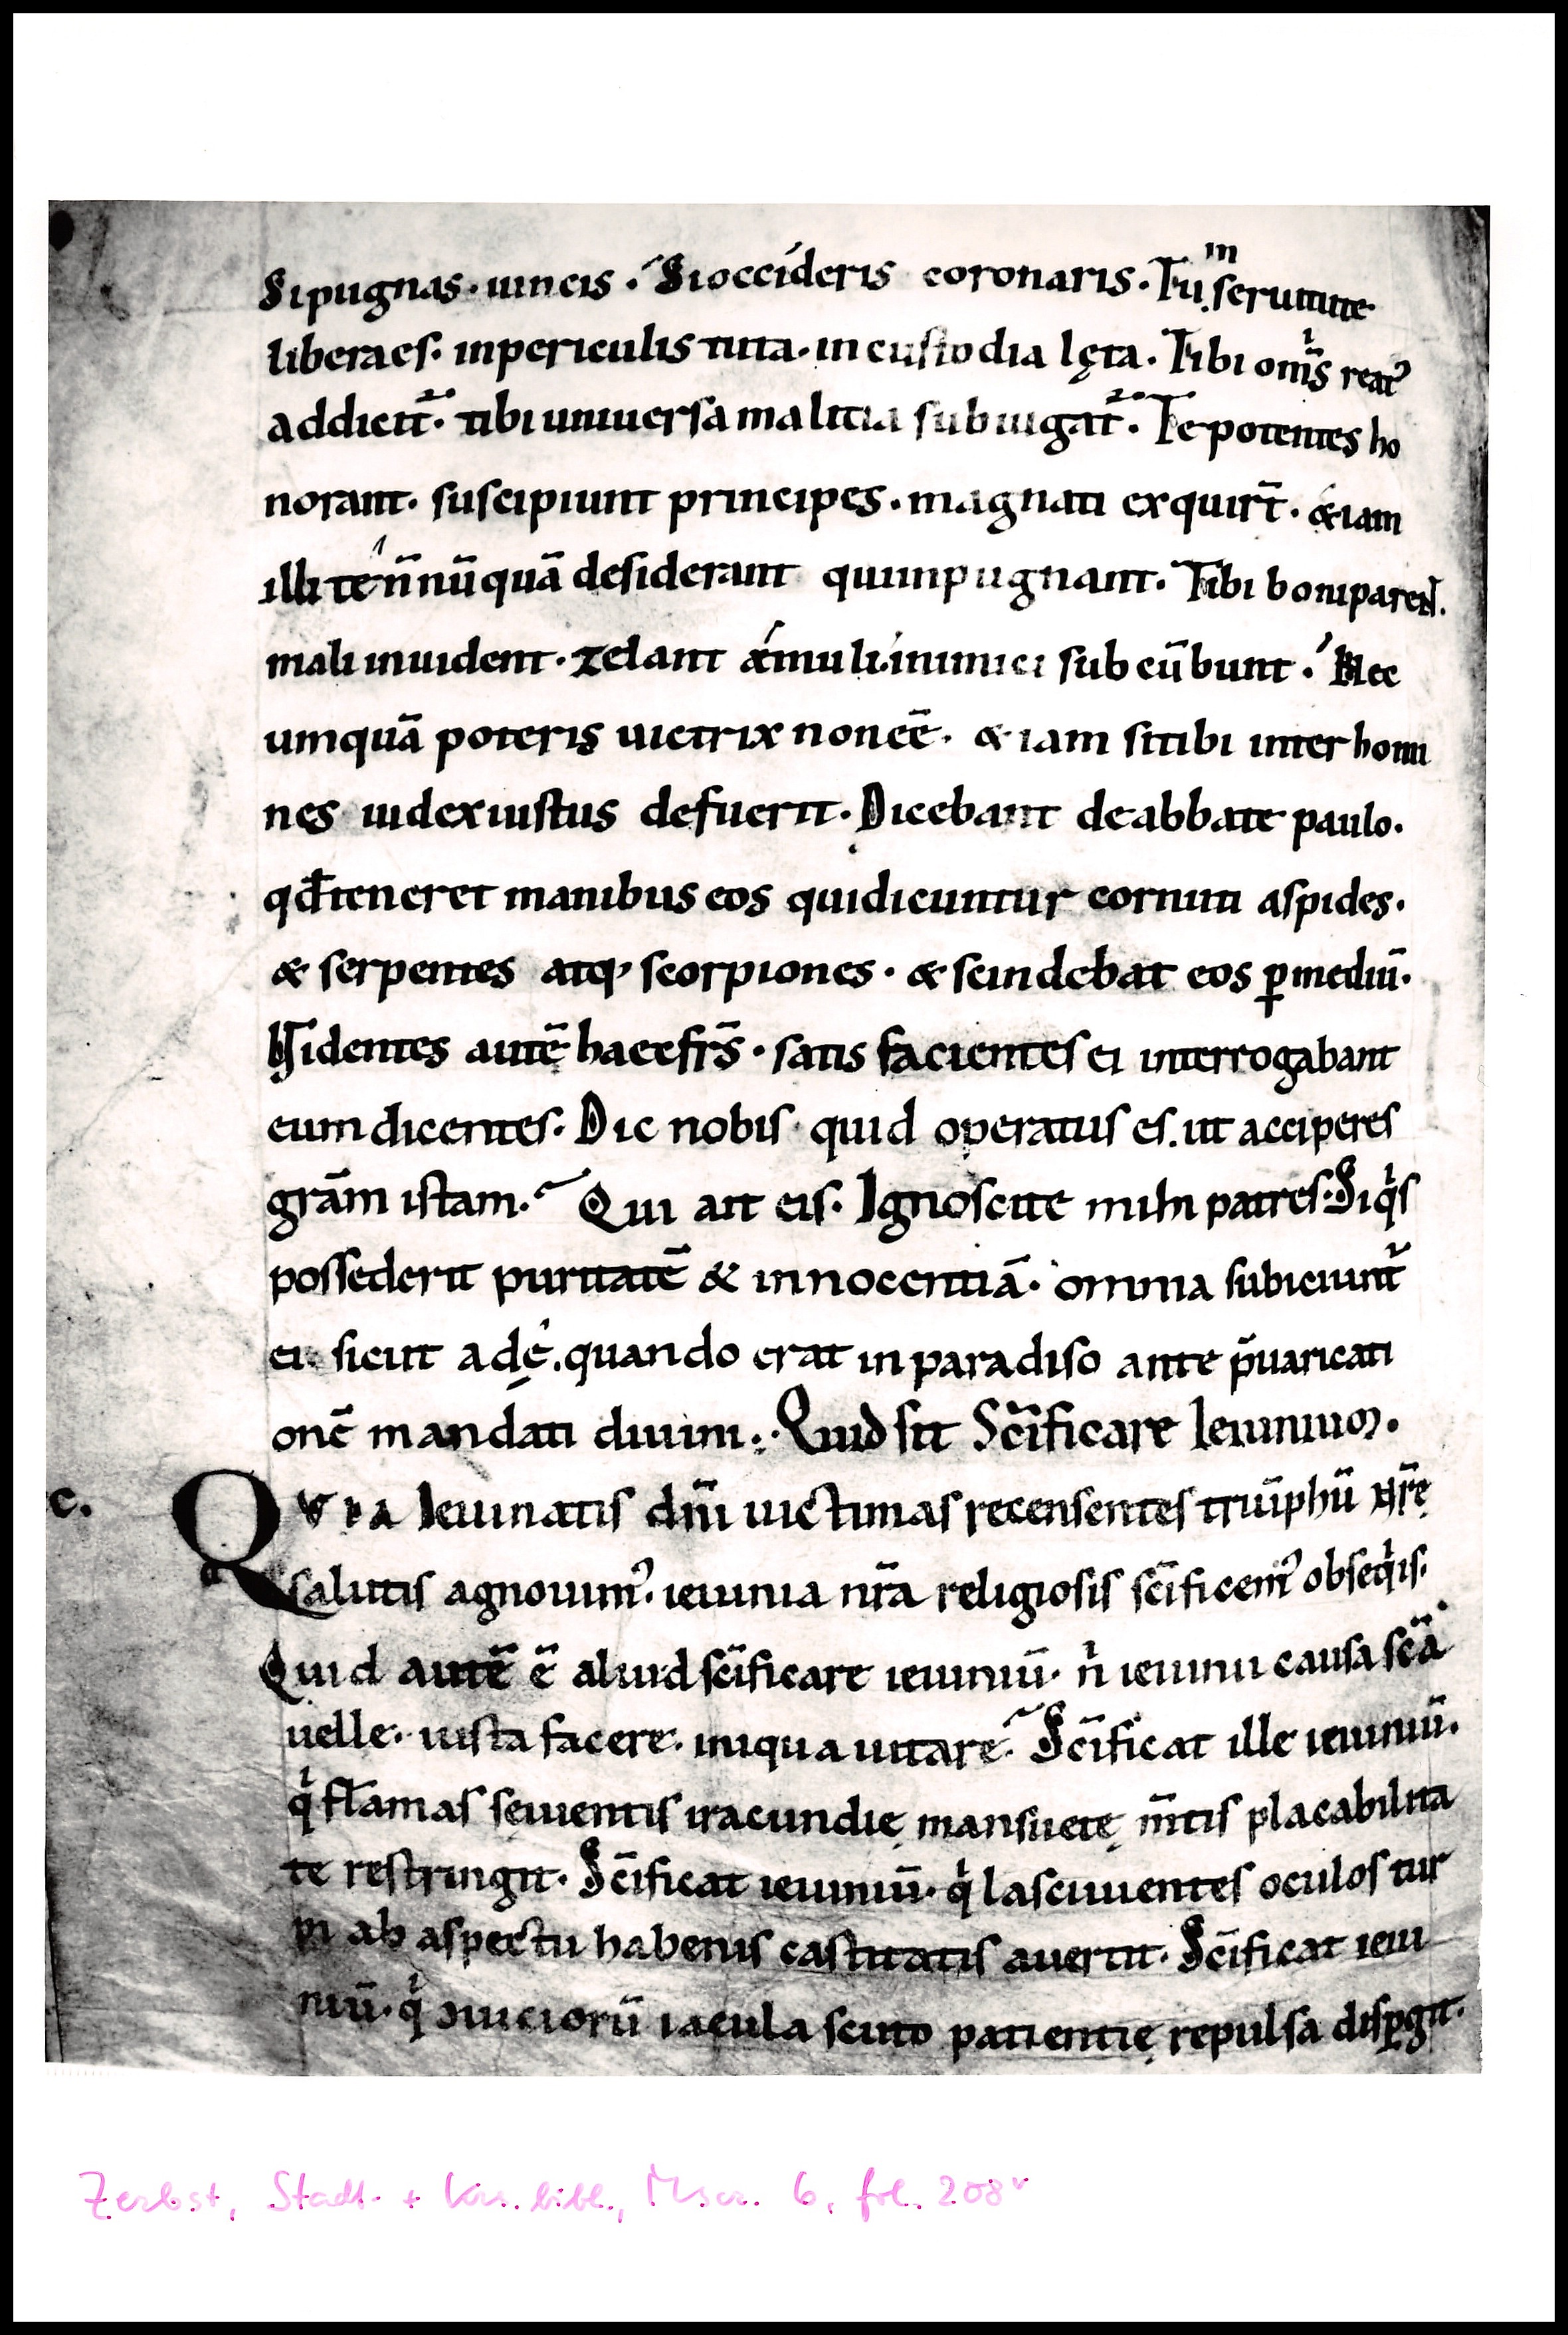 Si pugnas· uincis· Si occideris coronaris· Tu in seruitute
libera es· in periculis tuta· in custodia lęta· Tibi om̄is reat᾿
addicit᷑· tibi uniuersa malicia subiugat᷑· Te potentes ho
norant· suscipiunt principes· magnati exquir̄t· & iam
illi te n̄nūquā desiderant qui inpugnant· Tibi boni parent.
mali inuident· zelant æmuli. inimici subcūbunt· Nec
umquā poteris uictrix non eē· & iam si tibi inter homi
nes iudex iustus defuerit· Dicebant de abbate paulo·
qđ teneret manibus eos qui dicuntur cornuti aspides·
& serpentes atq; scorpiones· & scindebat eos ꝑ mediū·
Videntes autē haec fr̄s· satis facientes ei interrogabant
eum dicentes· Dic nobis quid operatus es. ut acciperes
grām istam· Qui ait eis· Ignoscite mihi patres· Si qⁱs
possederit puritatē & innocentiā· omnia subiciunt᷑
ei sicut adę. quando erat in paradiso ante p̄uaricati
onē mandati diuini·. Quid sit Sc̄ificare Ieiunium·
c. QVIA Ieiunatis dn̄i uictimas recensentes triūphū nr̄ę
salutis agnouim᾿· ieiunia nr̄a religiosis sc̄ificem᾿ obseqⁱis·
Quid autē ē aliud sc̄ificare ieiuniū· nⁱ ieiunii causa sc̄a
uelle· iusta facere· iniqua uitare· Sc̄ificat ille ieiuniū·
qⁱ flāmas seuientis iracundię mansuetę m̄tis placabilita
te restringit· Sc̄ificat ieiuniū· qⁱ lasciuientes oculos tur
pi ab aspectu habenis castitatis auertit· Sc̄ificat ieiu
niū· qⁱ ɔuicioru̅ iacula scuto patientię repulsa disꝑgit·
Zerbst, Stadt- + Krs.bibl., Mscr. 6, fol. 208v